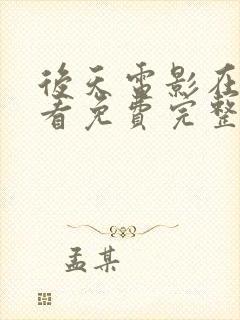 後天雷影在
看免費完整
孟某